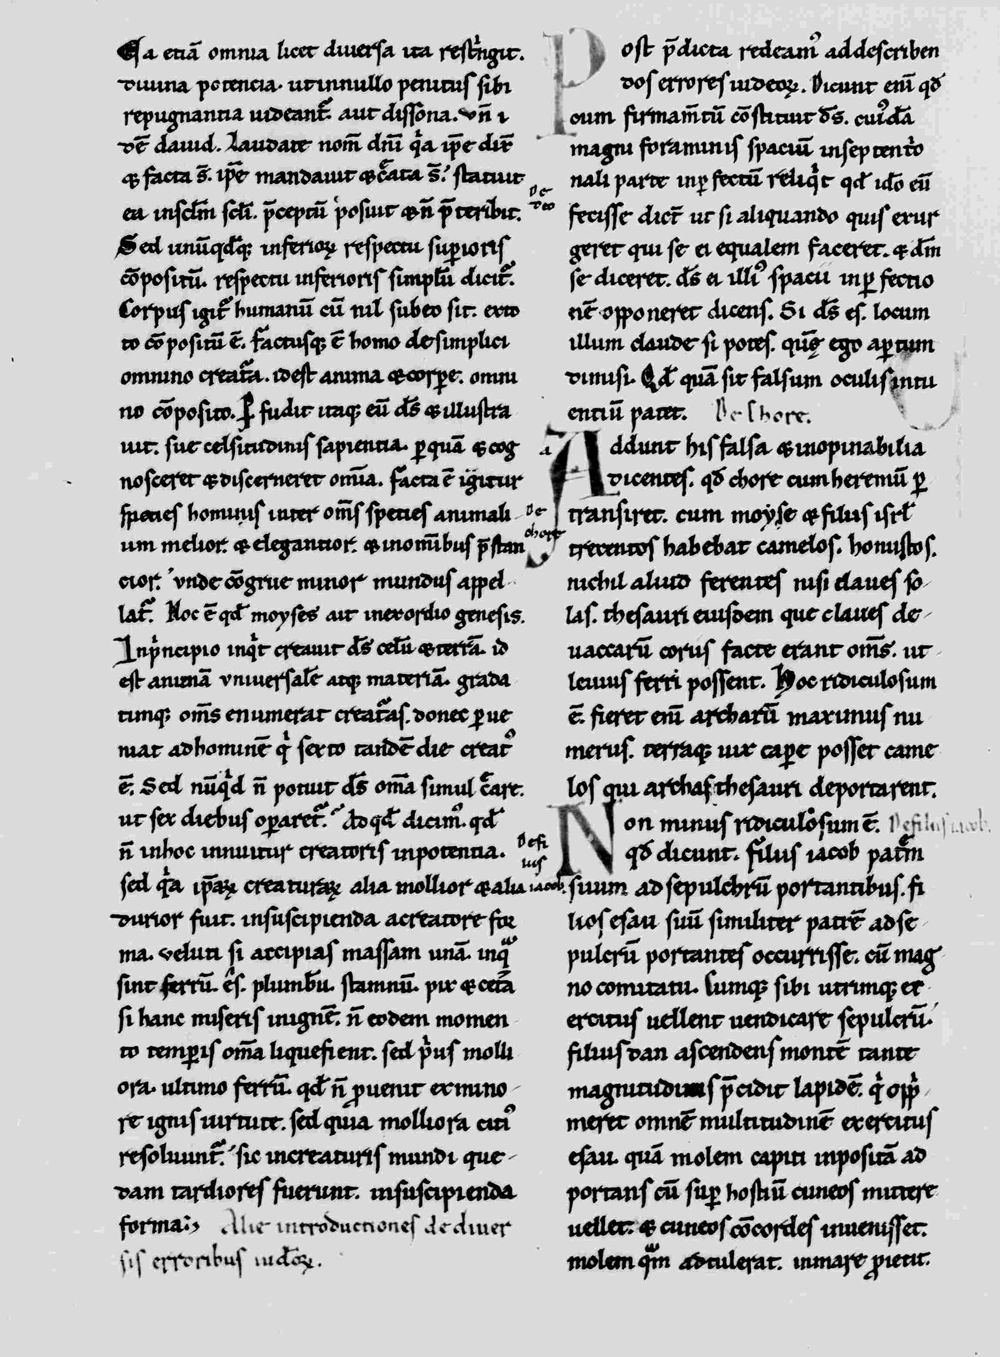 Ea etiā omnia licet diuersa ita rest̄ngit.
diuina potencia. ut innullo penitus sibi
repugnantia uideant᷑. aut dissona. vn̄ ⁊
dē dauid. Laudate nom̄ dn̄i qͥa ip̄e dix̄
⁊ facta s̄. ip̄e mandauit ⁊ c̄ata s̄. statuit
ea insc̄lm sc̄li. p̄ceptū posuit ⁊ n̄ p̄teribit.
Sed unūqd̄q; inferioꝝ respectu suꝑioris
cōpositū. respectu inferioris simplū dicit᷑.
Corpus igit᷑ humanū cū nil subeo sit. exto
to cōpositū ē. factusq; ē homo de simplici
omnino creat᷑a. idest anima ⁊ corꝑe. omni
no cōposito. ꝑfudit itaq; eū d̄s ⁊ illustra
uit. sue celsitudinis sapientia. ꝑquā ⁊ cog
nosceret ⁊ discerneret om̄ia. facta ē igitur
species hominis inter om̄s species animali
um melior. ⁊ elegantior. ⁊ inom̄ibus p̄stan
cior. vnde cōgrue minor mundus appel
lat᷑. Hoc ē qd̄ moyses ait inexordio genesis.
Inp̄ncipio inqͥt creauit d̄s celū ⁊ terrā. id
est animā vniuersalē atq; materiā. grada
timq; om̄s enumerat creat᷑as. donec ꝑue
niat adhominē qͥ sexto tandē die creatꝰ
ē. Sed nūqͥd n̄ potuit d̄s om̄a simul c̄are.
ut sex diebus oꝑaret᷑. Ad qd̄ dicimꝰ. qd̄
n̄ inhoc innuitur creatoris inpotentia.
sed qͥa ip̄aꝝ creaturaꝝ alia mollior ⁊ alia
durior fuit. insuscipienda acreatore for
ma. veluti si accipias massam unā. inqͣ
sint ferrū. ēs. plumbū. stamnū. pix ⁊ cet᷑a
si hanc miseris inignē. n̄ eodem momen
to temꝑis om̄a liquefient. sed pͥus molli
ora. ultimo ferrū. qd̄ n̄ ꝓuenit ex mino
re ignis uirtute. sed quia molliora citiꝰ
resoluunt᷑. sic increaturis mundi que
dam tardiores fuerunt. insuscipienda
forma.
Alie introductiones de diuer
sis erroribus iudeoꝝ.
De
deo
De
chore
De fi
liis
iacob.
Post p̄dicta redeamꝰ ad describen
dos errores iudeoꝝ. Dicunt enī qd̄
cum firmam̄tū cōstituit d̄s. cuiꝰdā
magni foraminis spaciū inseptentͥo
nali parte inꝑfectū reliqͥt qd̄ id̄o eū
fecisse dict᷑ ut si aliquando quis exur
geret qui se ei equalem faceret. ⁊ d̄m
se diceret. d̄s ei illiꝰ spacii inꝑfectio
nē opponeret dicens. Si d̄s es. locum
illum claude si potes. quē ego apertum
dimisi. Qd̄ quā sit falsum oculis intu
entiū patet. De chore.
Addunt his falsa ⁊ inopinabilia
dicentes. qd̄ chore cum heremū ꝑ
transiret. cum moyse ⁊ filiis isr̄l
trecentos habebat camelos. honustos.
nichil aliud ferentes nisi claues so
las. thesauri eiusdem que claues de
uaccarū coriis facte erant om̄s. ut
leuius ferri possent. Hoc ridiculosum
ē. fieret enī archarū maximus nu
merus. terraq; uix caꝑe posset came
los qui archas thesauri deportarent.
Non minus ridiculosum ē. De filiis iacob.
qd̄ dicunt. filius iacob patrē
suum ad sepulchrū portantibus. fi
lios esau suū similiter patrē ad se
pulcrū portantes occurrisse. cū mag
no comitatu. Cumq; sibi utrimq; ex
ercitus uellent uendicare sepulcrū.
filius dan ascendens montē tante
magnitudinis p̄cidit lapidē. qͥ oppͥ
meret omnē multitudinē exercitus
esau. quā molem capiti inpositā ad
portans cū suꝑ hostiū cuneos mittere
uellet. ⁊ cuneos cōcordes inuenisset.
molem qͣm adtulerat. inmare ꝓiecit.